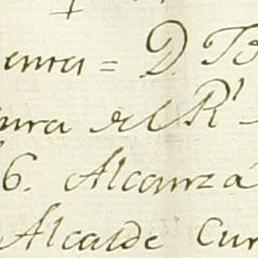 enta = D. B
ura del R.l
6. Alcanza
Alcalde Cur